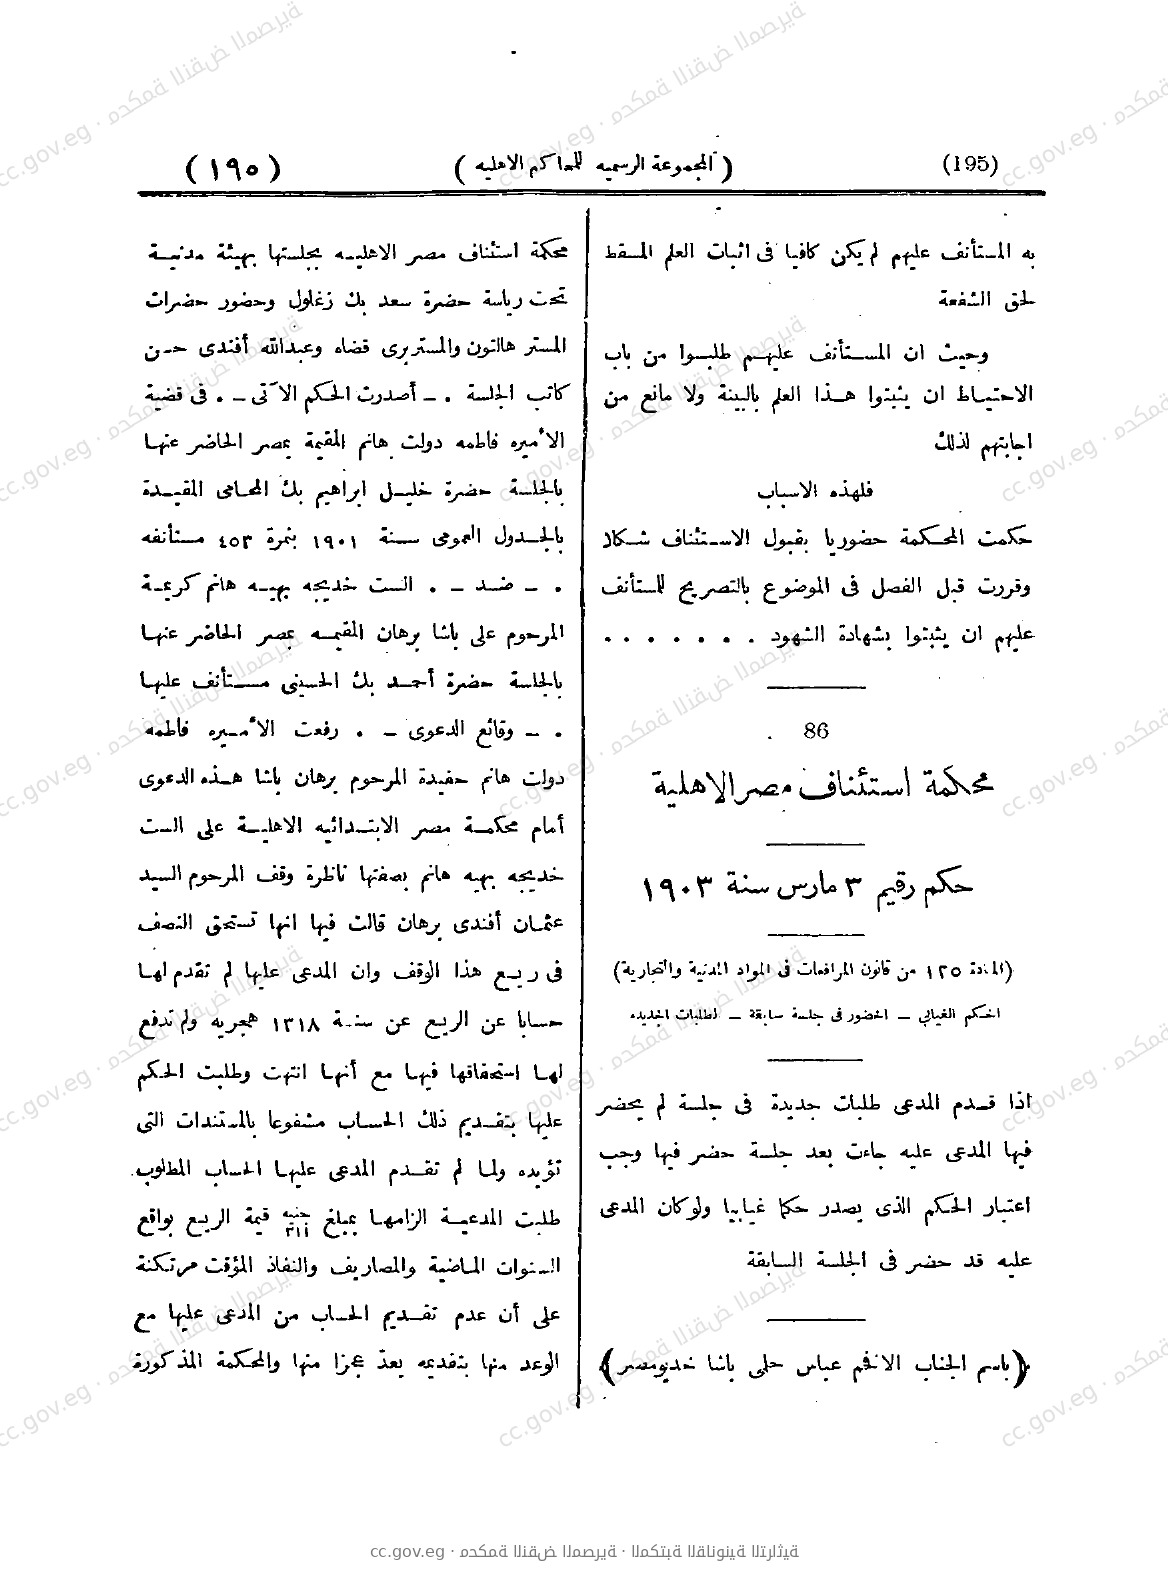 (195) ( المجموعة الرسميه للمحاكم الاهليه ) ( ١٩٥ )
به المستأنف عليهم لم يكن كافيا فى اثبات العلم المسقط
لحق الشفعة
وحيث ان المستأنف عليهم طلبوا من باب
الاحتياط ان يثبتوا هذا العلم بالبينة ولا مانع من
اجابتهم لذلك
فلهذه الاسباب
حكمت المحكمة حضوريا بقبول الاستئناف شكلا
وقررت قبل الفصل فى الموضوع بالتصريح للمستأنف
عليهم ان يثبتوا بشهادة الشهود . . . . . . .
86
محكمة استئناف مصر الاهلية
حكم رقيم ٣ مارس سنة ١٩٠٣
(المادة ١٢٥ من قانون المرافعات فى المواد المدنية والتجارية)
الحكم الغيابي – الحضور فى جلسة سابقة – الطلبات الجديده
اذا قدم المدعى طلبات جديدة فى جلسة لم يحضر
فيها المدعى عليه جاءت بعد جلسة حضر فيها وجب
اعتبار الحكم الذى يصدر حكما غيابيا ولو كان المدعى
عليه قد حضر فى الجلسة السابقة
(باسم الجناب الافخم عباس حلمى باشا خديو مصر)
محكمة استئناف مصر الاهليه بجلستها بهيئة مدنية
تحت رياسة حضرة سعد بك زغلول وحضور حضرات
المستر هالتون والمستر برى قضاه وعبدالله أفندى حسن
كاتب الجلسة . – أصدرت الحكم الآتى – . فى قضية
الأميره فاطمه دولت هانم المقيمة بمصر الحاضر عنها
بالجلسة حضرة خليل ابراهيم بك المحامى المقيدة
بالجدول العمومى سنة ١٩٠١ بنمرة ٤٥٣ مستأنفه
. – ضد – . الست خديجه بهيه هانم كريمة
المرحوم على باشا برهان المقيمه بمصر الحاضر عنها
بالجلسة حضرة أحمد بك الحسينى مستأنف عليها
. – وقائع الدعوى – . رفعت الأميره فاطمه
دولت هانم حفيدة المرحوم برهان باشا هذه الدعوى
أمام محكمة مصر الابتدائيه الاهلية على الست
خديجه بهيه هانم بصفتها ناظرة وقف المرحوم السيد
عثمان أفندى برهان قالت فيها انها تستحق النصف
فى ريع هذا الوقف وان المدعى عليها لم تقدم لها
حسابا عن الريع عن سنة ١٣١٨ هجريه ولم تدفع
لها استحقاقها فيها مع أنها انتهت وطلبت الحكم
عليها بتقديم ذلك الحساب مشفوعا بالمستندات التى
تؤيده ولما لم تقدم المدعى عليها الحساب المطلوب
طلبت المدعية الزامها بمبلغ ٣١١ جنيه قيمة الريع بواقع
السنوات الماضية والمصاريف والنفاذ المؤقت مرتكنة
على أن عدم تقديم الحساب من المدعى عليها مع
الوعد منها بتقديمه يعدّ عجزا منها والمحكمة المذكورة
cc.gov.eg · محكمة النقض المصرية · المكتبة القانونية التراثية